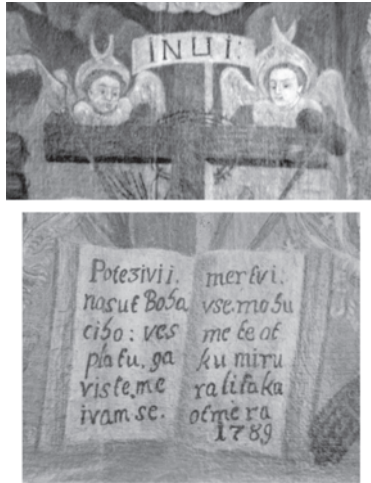 INUI:
Potezivi i.
nasut Boħa
ciħo: ves
platu. ga
viste. me
ivam se.
mertvi:
vse. moħu
me te ot
ku miru
ra litaka
otme ra
1789